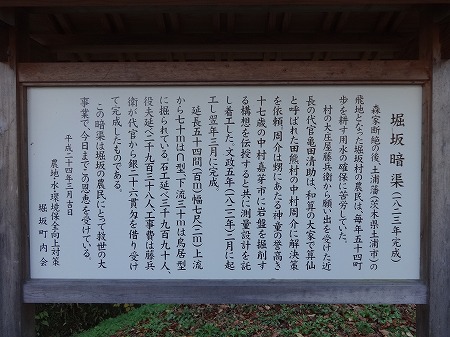 堀坂暗渠(八二三年完成)
森家断絶の後、土浦藩(茨木県土浦市)の
飛地となった堀坂村の農民は、毎年五十四町
歩を耕す用水の確保に苦労していた。
村の大庄屋藤兵衛から願い出を受けた近
長の代官亀田清助は、和算の大家で算仙
と呼ばれた田熊村の中村周介に解決策
を依頼。周介は甥にあたる神童の誉高き
十七歳の中村嘉芽市に岩盤を掘削す
る構想を伝授すると共に測量設計を託
し着工した。文政五年(一八二二年)二月に起
工し翌年三月に完成。
延長五十四間(百m)幅七尺(二m)上流
から七十mは∩型、下流三十mは鳥居型
に掘られている。石工延べ三千九百九十人、
役夫延べ二千九百三十八人工事費は藤兵
衛が代官から銀二十六貫匁を借り受け
て完成したものである。
この暗渠は堀坂の農民にとって抜世の大
事業で、今日までこの恩恵を受けている。
平成二十四年三月吉日
農地・水・環境保全向上対策
堀坂町内会